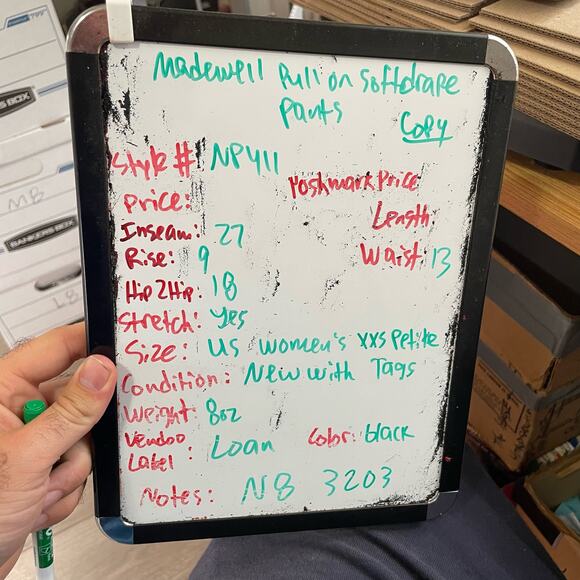 Madewell Pull on Softdrape
Pants
Copy
Style #: NP411
Poshmark Price
Price:
Length:
Inseam: 27
Waist: 13
Rise: 9
Hip 2 Hip: 18
Stretch: Yes
Size: US Women's XXS Petite
Condition: New with Tags
Weight: 8oz
Vendoo Label: Loan
Color: black
Notes: N8 3203
BANKERS BOX
MB